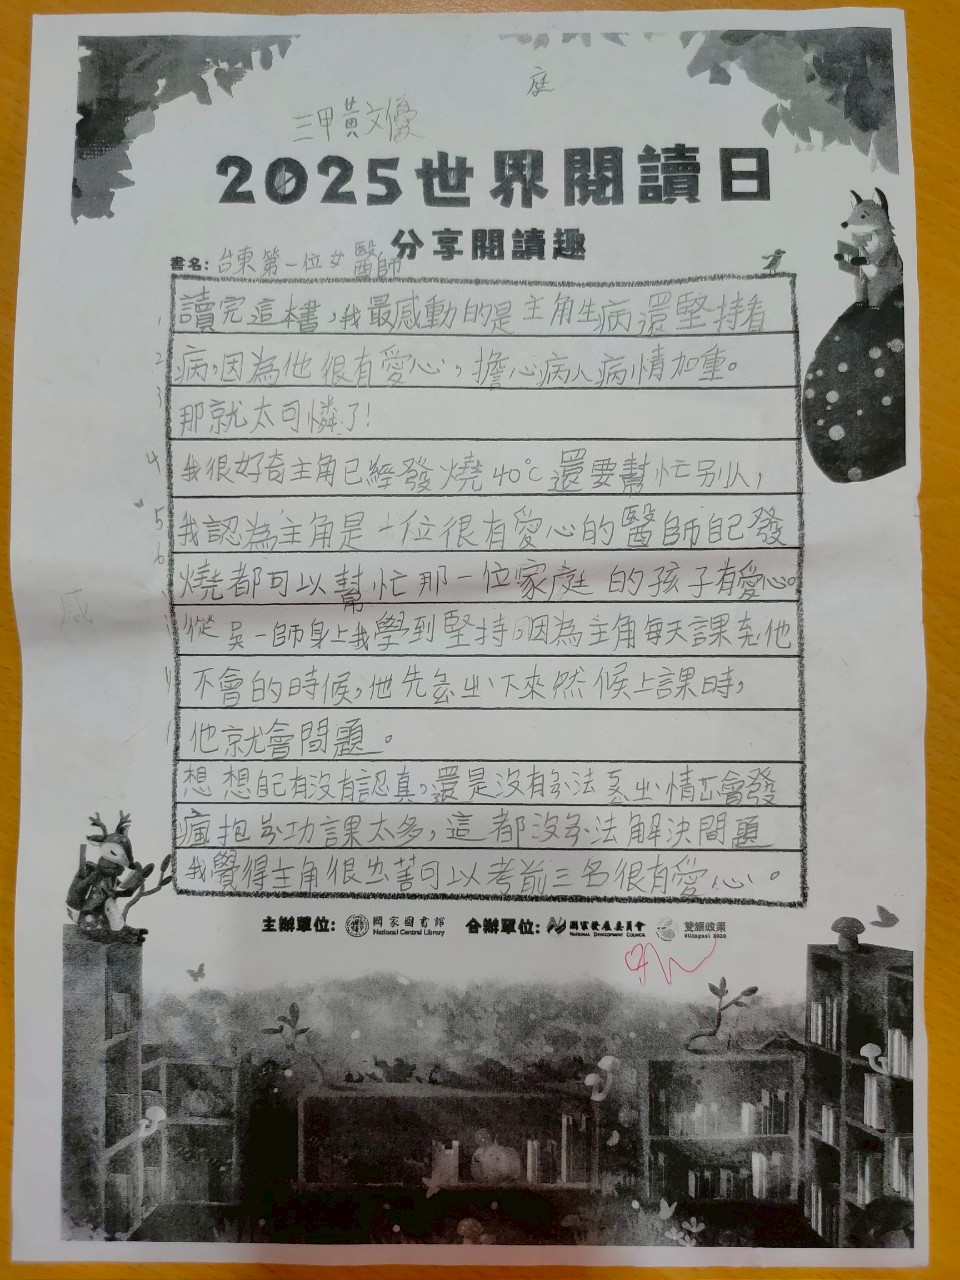 庭
三甲黃文優
2025世界閱讀日
分享閱讀趣
書名：台東第一位女醫師
讀完這本書，我最感動的是主角生病還堅持看
病，因為他很有愛心，擔心病人病情加重。
那就太可憐了！
我很好奇主角已經發燒40℃還要幫忙別人，
我認為主角是一位很有愛心的醫師自己發
燒都可以幫忙那一位家庭的孩子有愛心。
從吳一師身上我學到堅持因為主角每天課充他
不會的時候，他先記下來然候上課時，
他就會問題。
想想自己有沒有認真，還是沒有辦法 出情 會發
瘋抱怨功課太多，這都沒辦法解決問題
我覺得主角很 可以考前三名很有愛心。
主辦單位：
國家圖書館
National Central Library
合辦單位：
國家發展委員會
NATIONAL DEVELOPMENT COUNCIL
雙語政策
Bilingual 2030
1
2
3
4
5
6
感